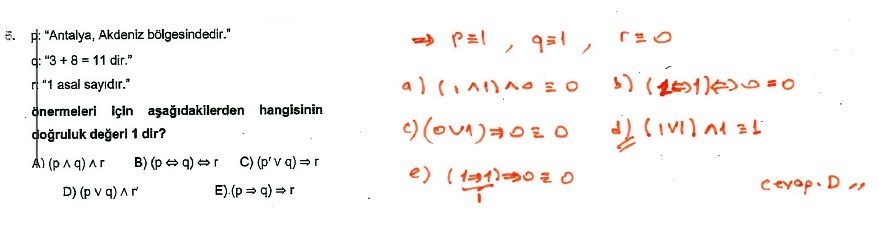 5. p: "Antalya, Akdeniz bölgesindedir."
q: "3 + 8 = 11 dir."
r: "1 asal sayıdır."
önermeleri için aşağıdakilerden hangisinin
doğruluk değeri 1 dir?
A) (p ∧ q) ∧ r B) (p ⇔ q) ⇔ r C) (p' ∨ q) ⇒ r
D) (p ∨ q) ∧ r' E) (p ⇒ q) ⇒ r
⇒ p≡1 , q≡1 , r≡0
a) (1∧1)∧0 ≡ 0 b) (1⇔1)⇔0 ≡ 0
c) (0∨1)⇒0 ≡ 0 d) (1∨1)∧1 ≡ 1
e) (1⇒1)⇒0 ≡ 0
1
cevap. D ,,